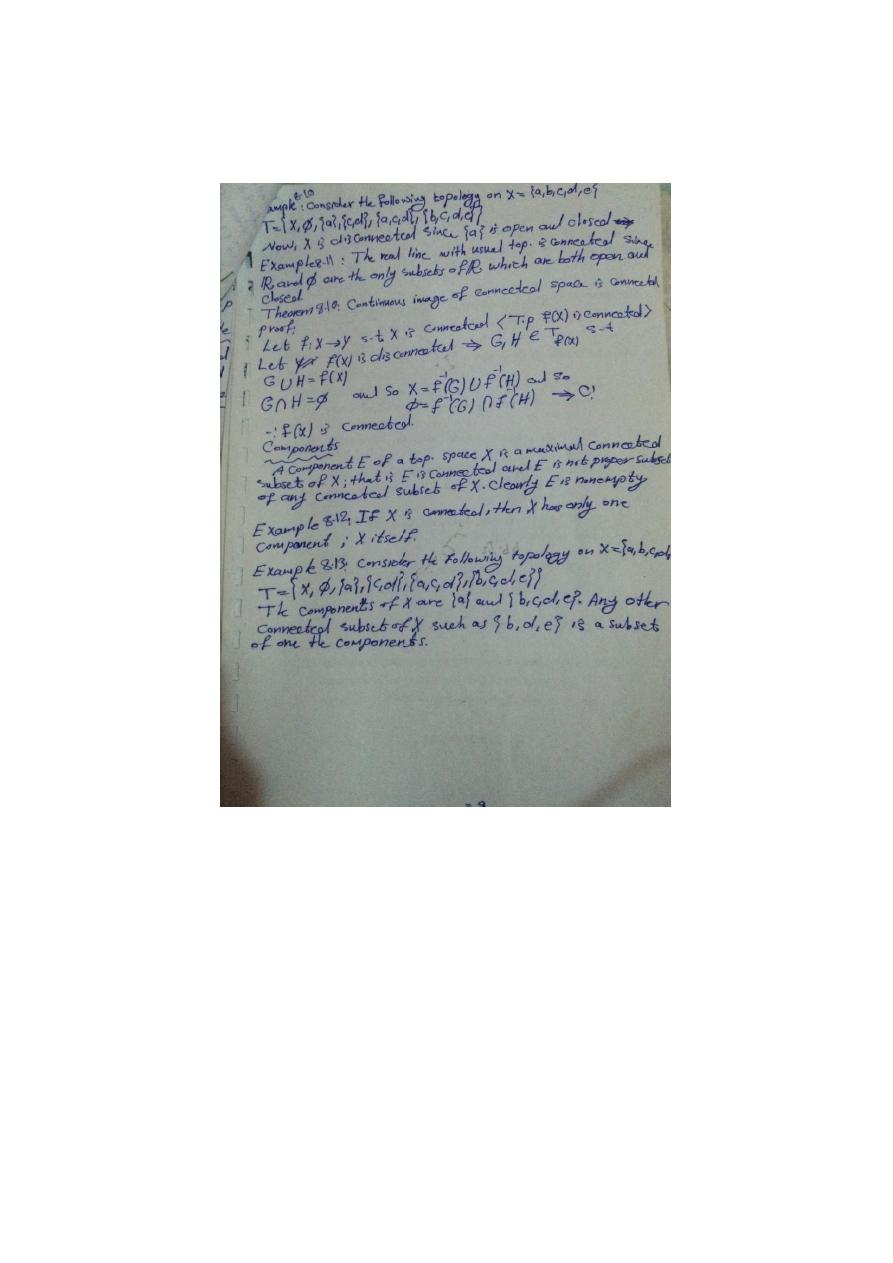 8.10
ample: Consider the following topology on X = {a,b,c,d,e}
T={X,Ø,{a},{c,d},{a,c,d},{b,c,d,e}}
Now, X is disconnected since {a} is open and closed
Example 8.11 : The real line with usual top. is connected since
ℝ and Ø are the only subsets of ℝ which are both open and
closed.
Theorem 8.10: Continuous image of connected space is connected
proof:
Let f: X→Y s.t. X is connected <T.p f(X) is connected>
Let f(X) is disconnected ⇒ G, H ∈ T_f(X) s.t
G∪H = f(X)
G∩H = Ø and so X = f⁻¹(G) ∪ f⁻¹(H) and so
Ø = f⁻¹(G) ∩ f⁻¹(H) → C!
∴ f(X) is connected.
Components
A Component E of a top. space X is a maximal connected
subset of X; that is E is connected and E is not proper subset
of any connected subset of X. Clearly E is nonempty
Example 8.12: If X is connected, then X has only one
component ; X itself.
Example 8.13: Consider the following topology on X={a,b,c,d,
T={X,Ø,{a},{c,d},{a,c,d},{b,c,d,e}}
The components of X are {a} and {b,c,d,e}. Any other
connected subset of X such as {b,d,e} is a subset
of one the components.